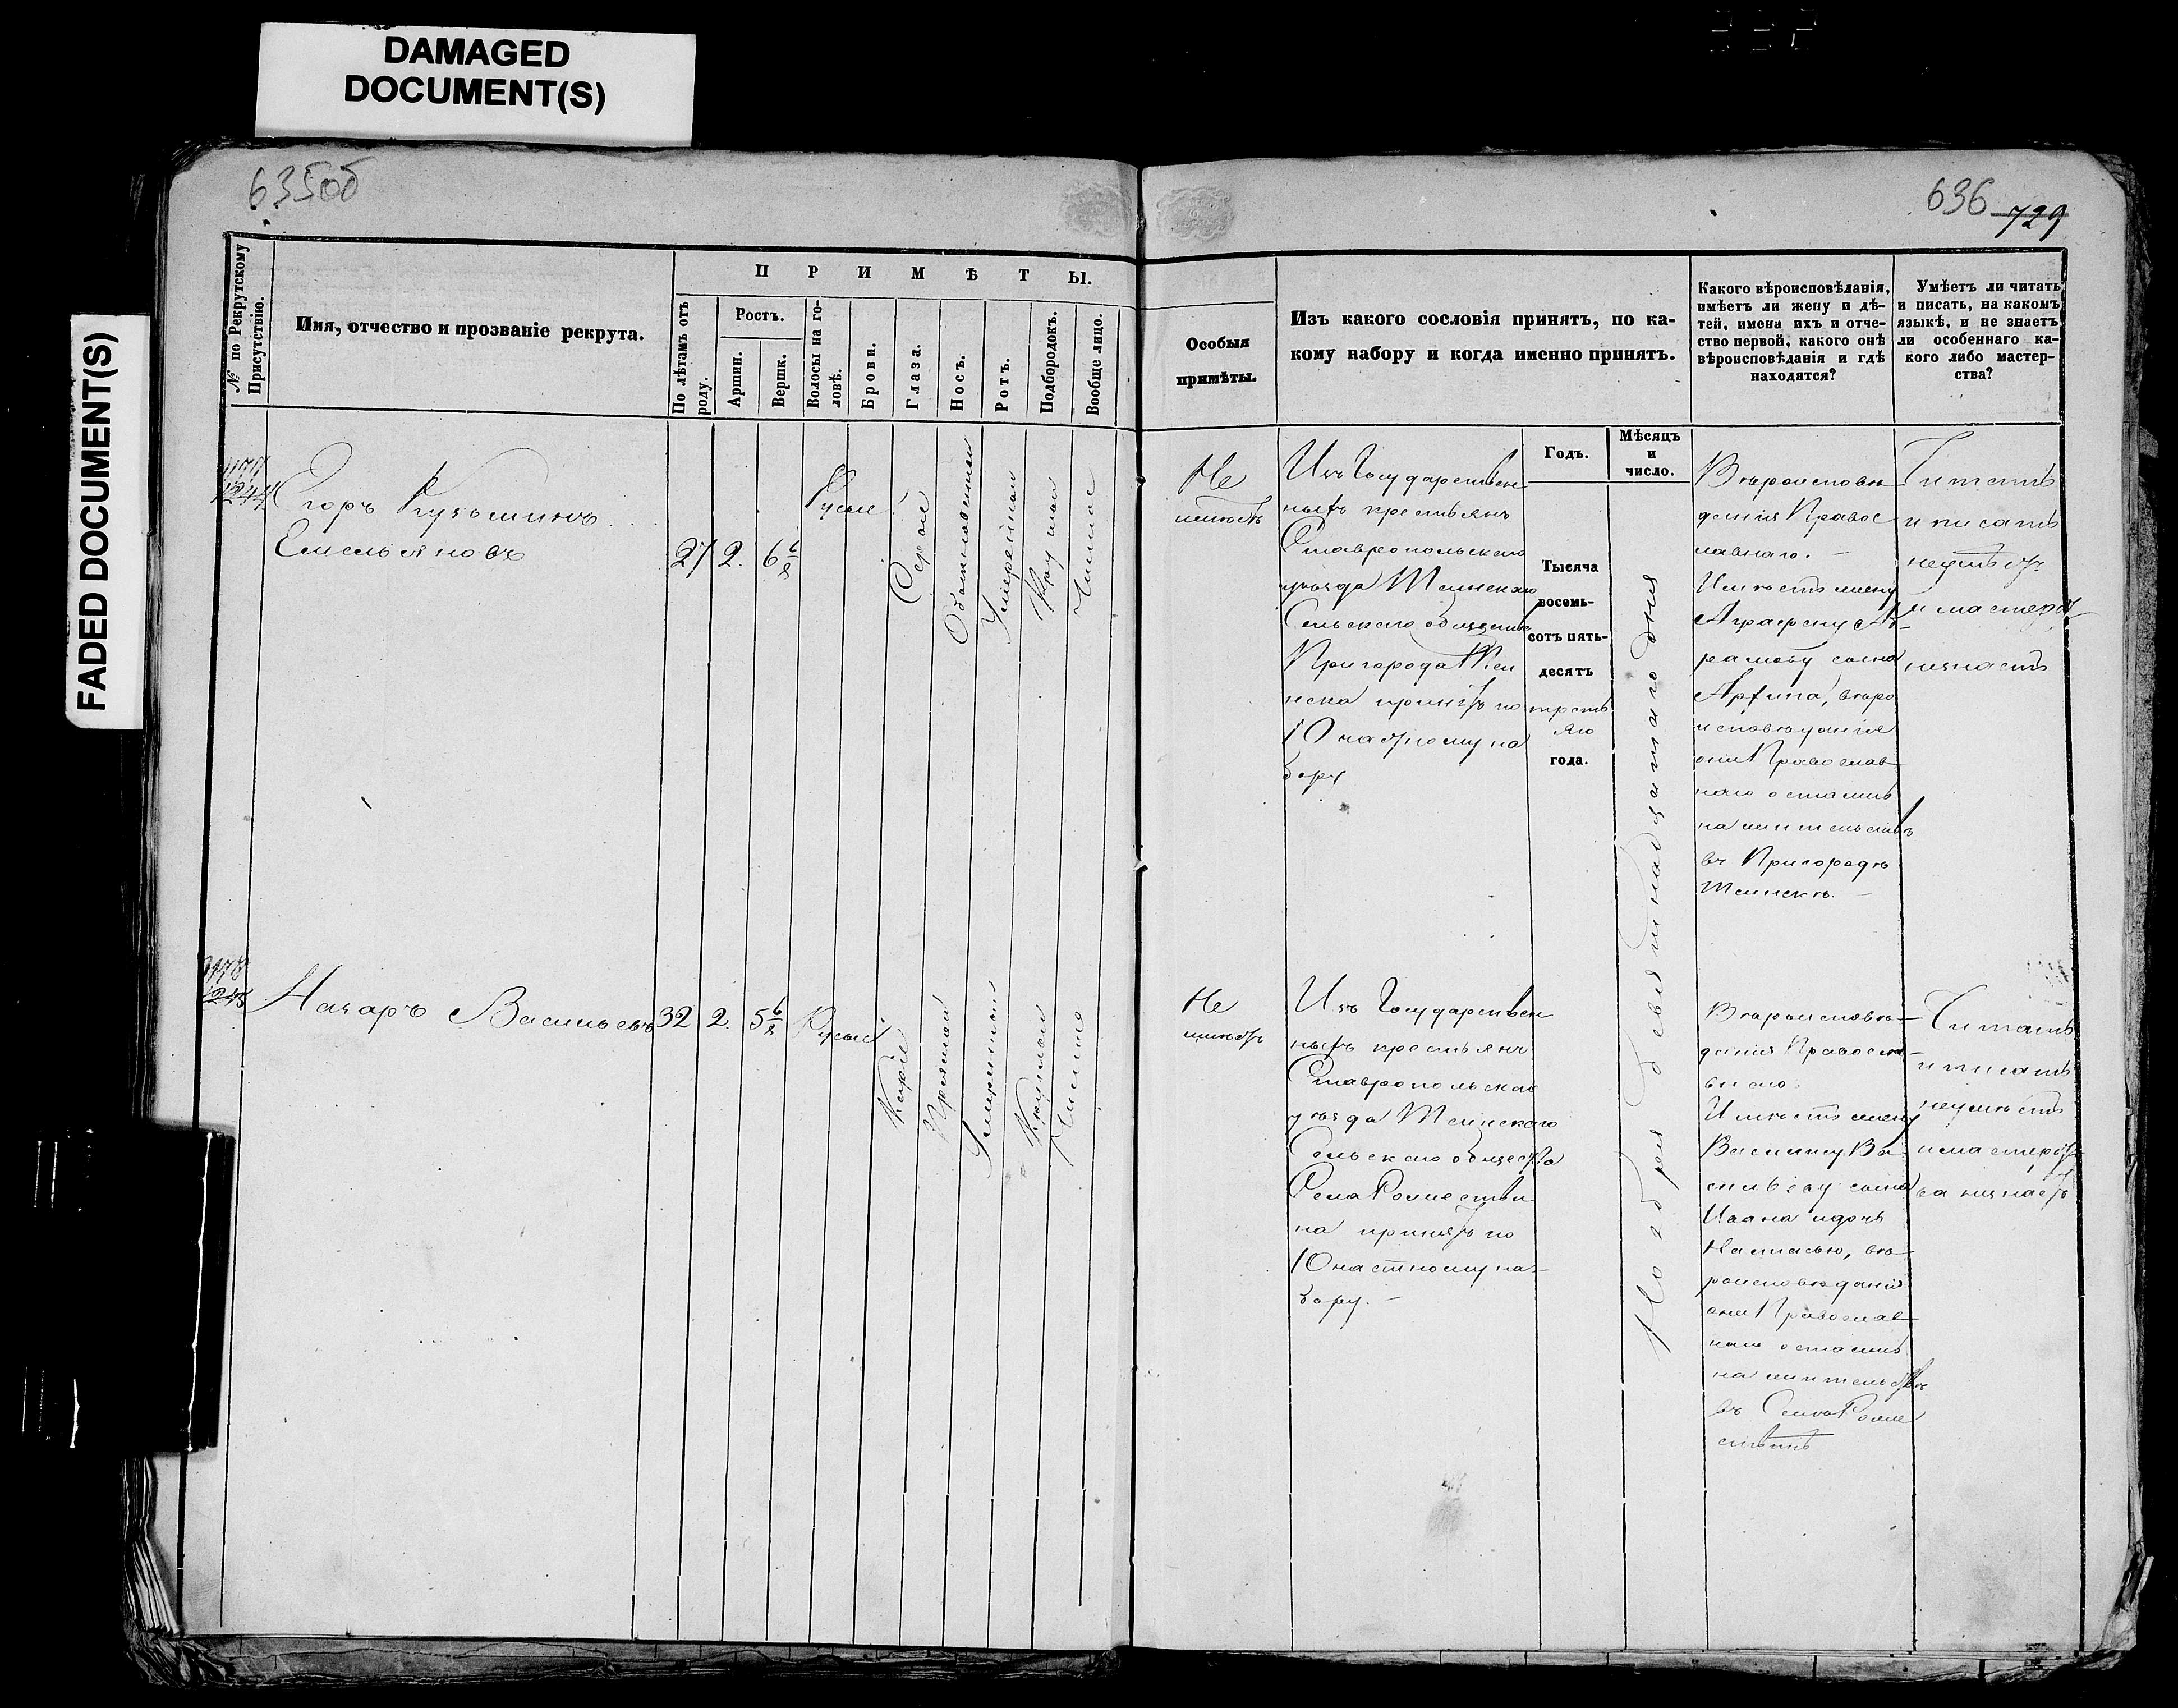 DAMAGED
DOCUMENT(S)
FADED DOCUMENT(S)
635об
636 729
№ по Рекрутскому
Присутствію.
Имя, отчество и прозваніе рекрута.
П Р И М Ѣ Т Ы.
По лѣтамъ отъ
роду.
Ростъ.
Аршин.
Вершк.
Волосы на го-
ловѣ.
Брови.
Глаза.
Носъ.
Ротъ.
Подбородокъ.
Вообще лицо.
Особыя
примѣты.
Изъ какого сословія принятъ, по ка-
кому набору и когда именно принятъ.
Какого вѣроисповѣданія,
имѣетъ ли жену и дѣ-
тей, имена ихъ и отче-
ство первой, какого онѣ
вѣроисповѣданія и гдѣ
находятся?
Умѣетъ ли читать
и писать, на какомъ
языкѣ, и не знаетъ
ли особеннаго ка-
кого либо мастер-
ства?
Годъ.
Мѣсяцъ
и
число.
1244
Егоръ Кузьминъ
Емельяновъ
27 2. 6 6/8
Русые
Серые
Обыкновенной
Умеренной
Круглой
Чистое
Не
имѣетъ
Изъ Государствен
ныхъ крестьянъ
Ставропольскаго
уѣзда Тіинскаго
Сельскаго общества
Пригорода Тіи
нска принятъ по
10 частному на
бору
Тысяча
восемь-
сотъ пять-
десятъ
треть
яго
года.
Ноября девятнадцатаго дня
Вѣроисповѣ
данія Правос
лавнаго.
Имѣетъ жену
Аграфену Ав
рамову сына
Архипа, вѣро
исповѣданія
они Православ
наго остались
на жительствѣ
въ Пригородѣ
Тіинскѣ.
Читать
и писать
неумѣетъ
и мастерст
незнаетъ
1245
Назаръ Васильевъ
32 2. 5 6/8
Русые
Карие
Прямой
Умеренной
Круглой
Чистое
Не
имѣетъ
Изъ Государствен
ныхъ крестьянъ
Ставропольскаго
уѣзда Тіинскаго
Сельскаго общества
Села Рожестви
на принятъ по
10 частному на-
бору.
Вѣроисповѣ-
данія Правосла
внаго.
Имѣетъ жену
Василису Ва
сильеву сына
Ивана и дочь
Настасью, вѣ-
роисповѣданія
они Православ
наго остались
на жительствѣ
въ Селѣ Роже
ствинѣ
Читать
и писать
неумѣетъ
и мастерст
ва незнаетъ